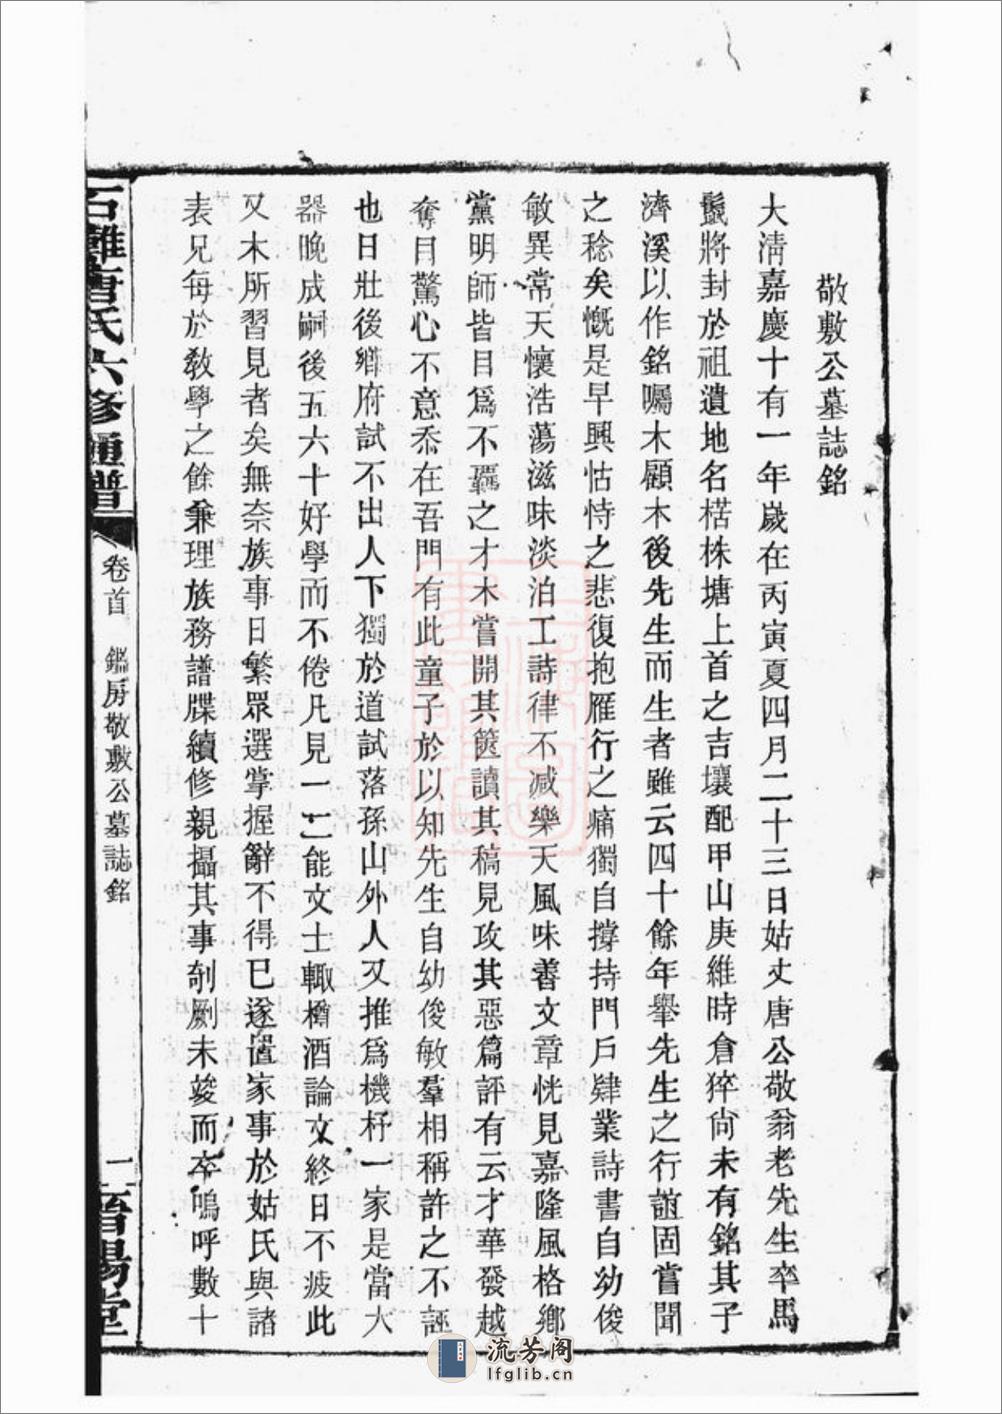 敬敷公墓誌銘
大淸嘉慶十有一年歲在丙寅夏四月二十三日姑丈唐公敬翁老先生卒馬
鬛將封於祖遺地名楛株塘上首之吉壤配甲山庚維時倉猝尙未有銘其子
濟溪以作銘囑木顧木後先生而生者雖云四十餘年舉先生之行誼固嘗聞
之稔矣慨是早興怙恃之悲復抱雁行之痛獨自撐持門戶肄業詩書自幼俊
敏異常天懷浩蕩滋味淡泊工詩律不減樂天風味善文章恍見嘉隆風格鄉
黨明師皆目爲不羈之才木嘗開其篋讀其稿見攻其惡篇評有云才華發越
奪目驚心不意忝在吾門有此童子於以知先生自幼俊敏羣相稱許之不誣
也日壯後鄉府試不出人下獨於道試落孫山外人又推爲機杼一家是當大
器晚成嗣後五六十好學而不倦凡見一二能文士輙樽酒論文終日不疲此
又木所習見者矣無奈族事日繁眾選掌握辭不得已遂置家事於姑氏與諸
表兄每於敎學之餘兼理族務譜牒續修親攝其事剞劂未竣而卒嗚呼數十
石灘唐氏六修通譜
卷首 鑑房敬敷公墓誌銘
一
晋陽堂
流芳阁
lfglib.cn